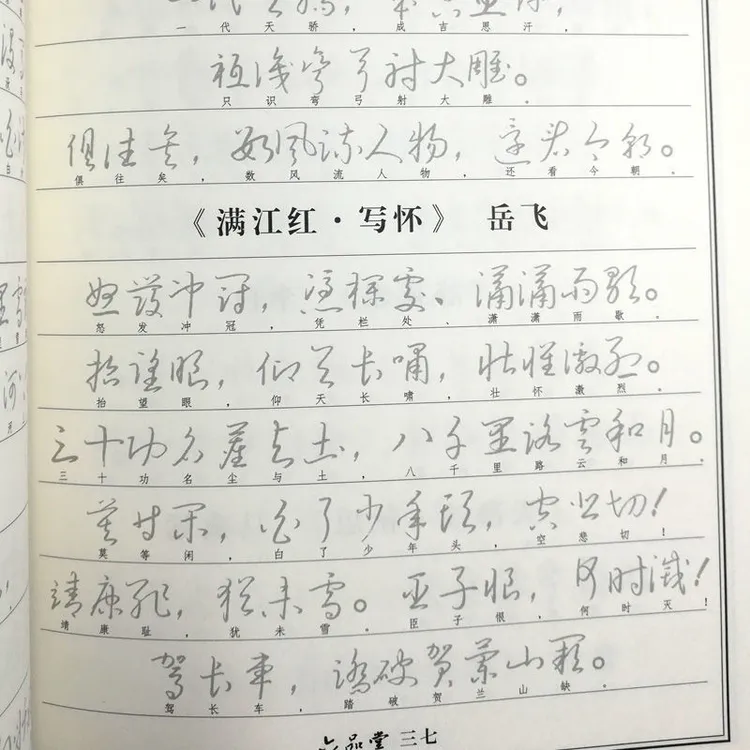 一代天骄，成吉思汗，
一代天骄，成吉思汗，
祗識彎弓射大雕。
只识弯弓射大雕。
俱往矣，数風流人物，還看今朝。
俱往矣，数风流人物，还看今朝。
《满江红·写怀》 岳飞
怒發冲冠，凭栏處、潇潇雨歇。
怒发冲冠，凭栏处、潇潇雨歇。
抬望眼，仰天长啸，壮怀激烈。
抬望眼，仰天长啸，壮怀激烈。
三十功名塵与土，八千里路雲和月。
三十功名尘与土，八千里路云和月。
莫等闲，白了少年头，空悲切！
莫等闲，白了少年头，空悲切！
靖康耻，犹未雪。臣子恨，何时滅！
靖康耻，犹未雪。臣子恨，何时灭！
驾长車，踏破贺蘭山缺。
驾长车，踏破贺兰山缺。
六品堂 三七